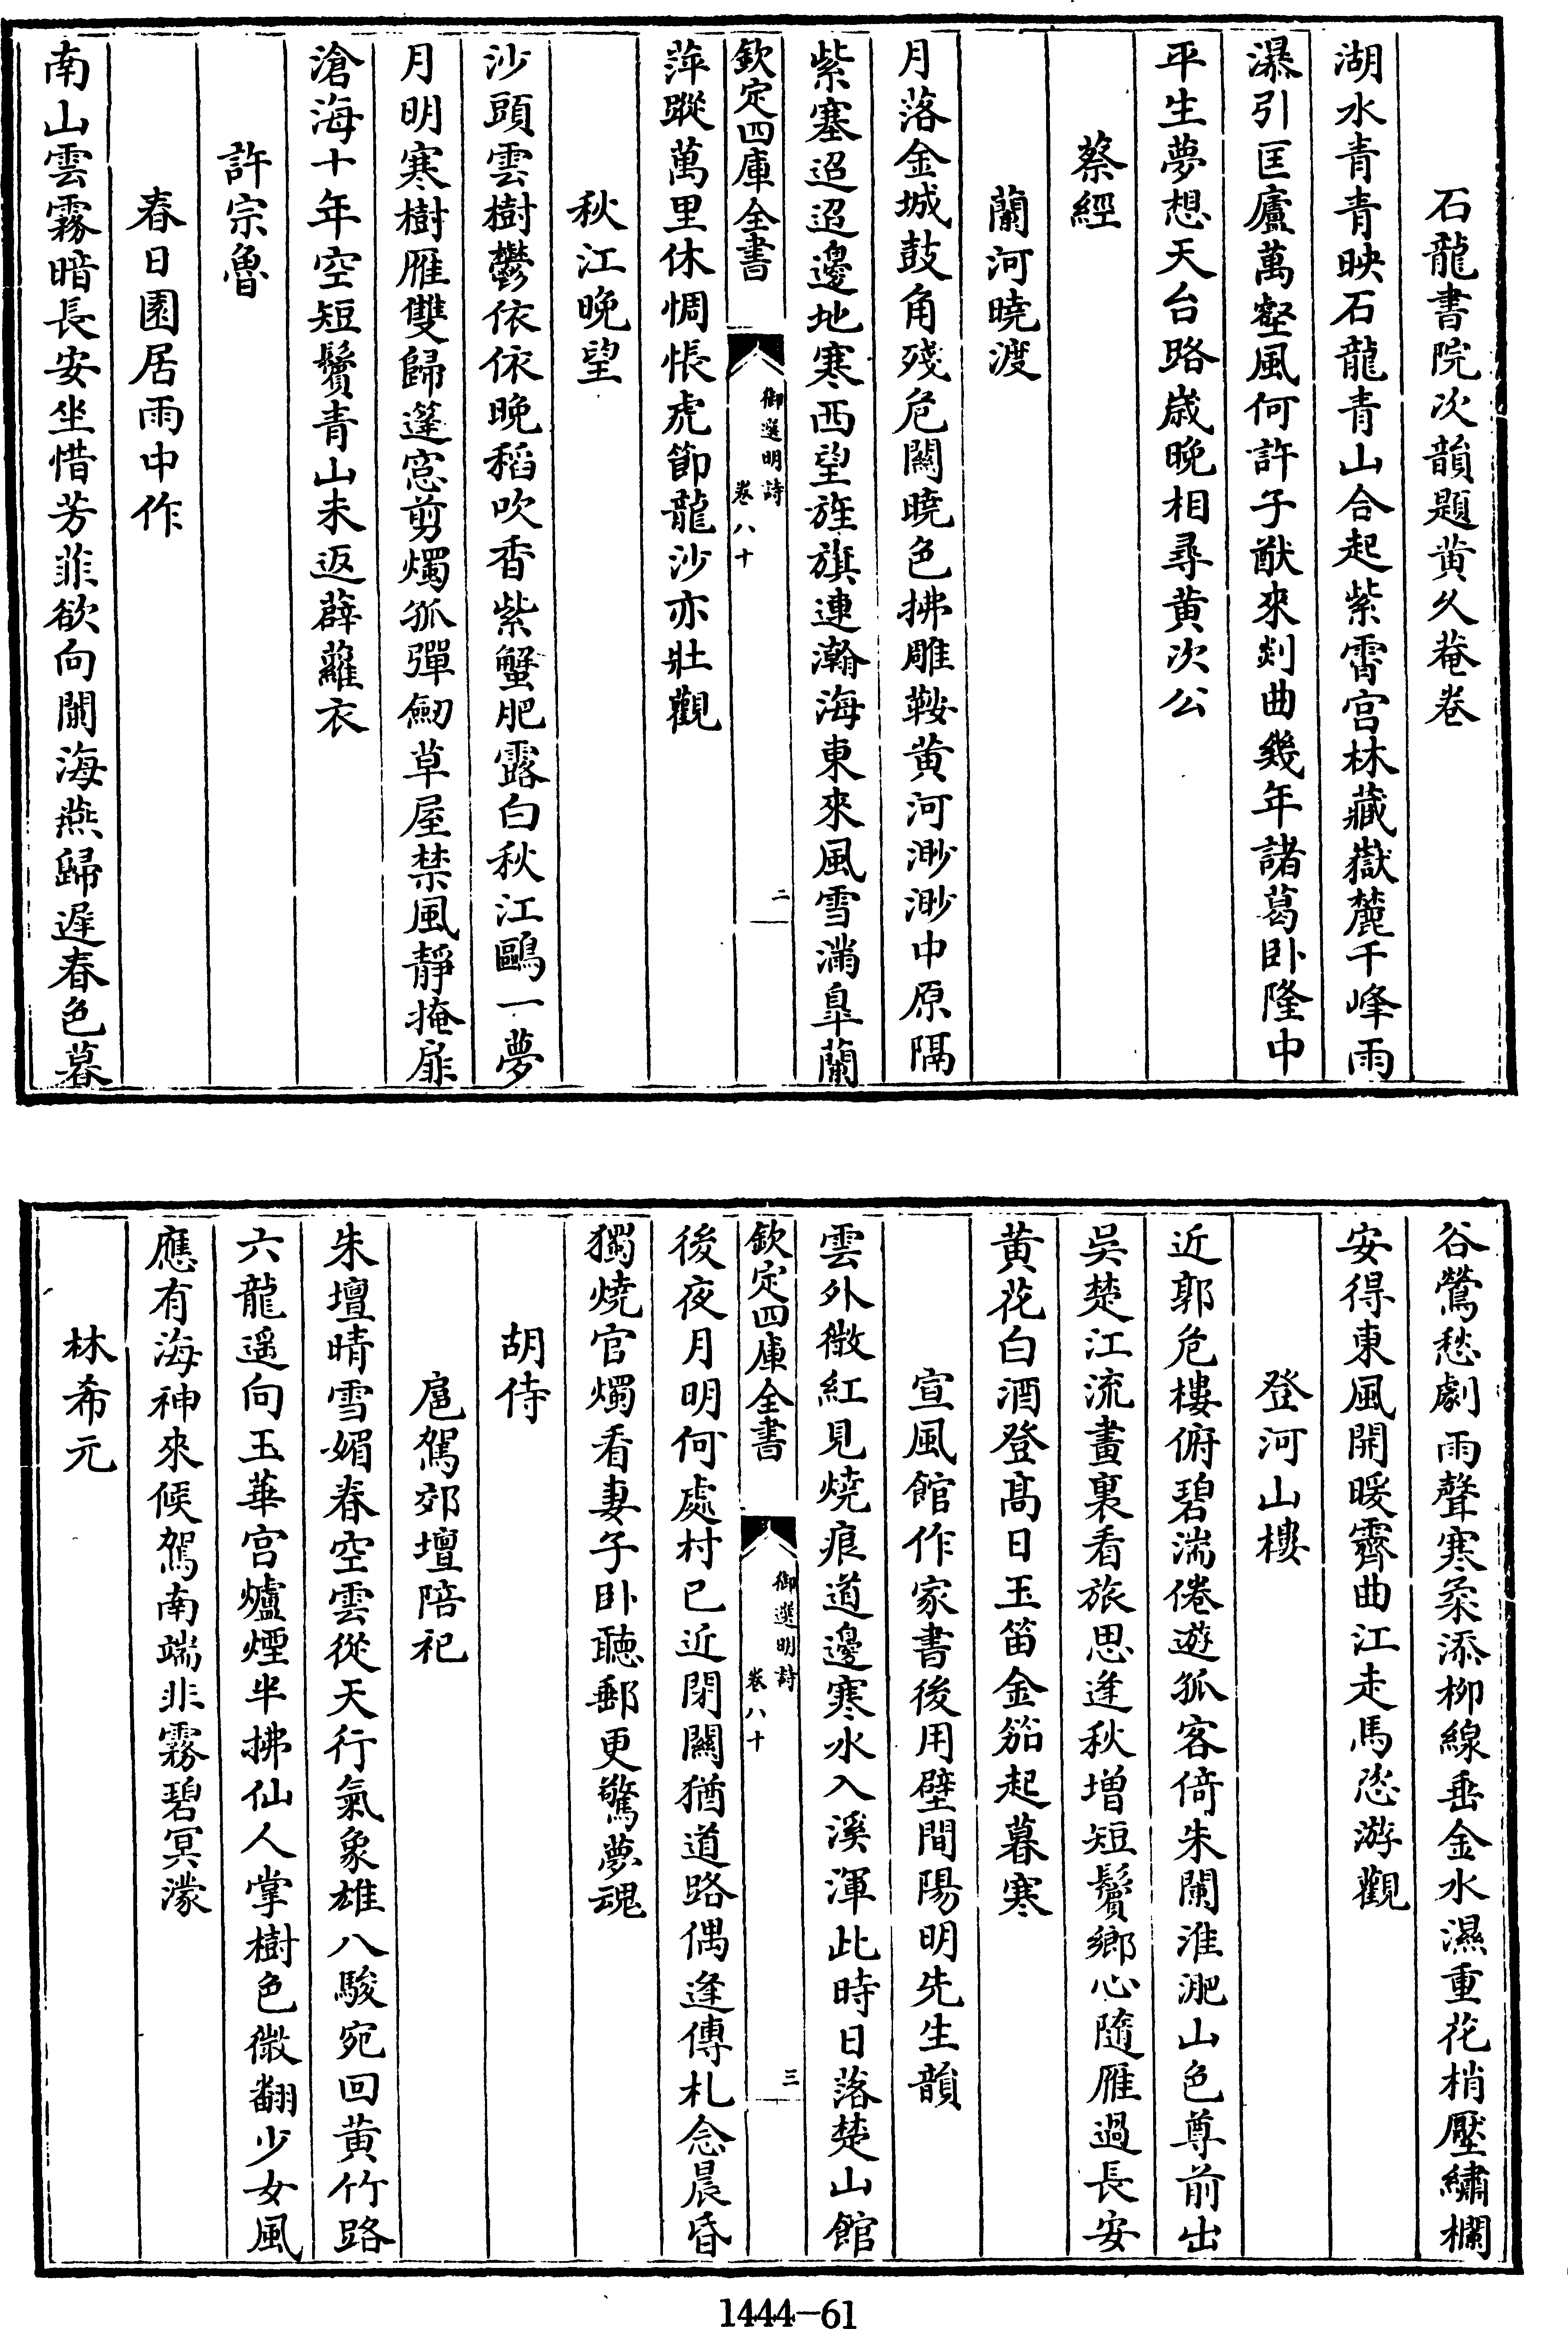 石龍書院次韻題黄久菴卷
湖水青青映石龍青山合起紫霄宫林藏嶽麓千峰雨
瀑引匡廬萬壑風何許子猷來剡曲幾年諸葛卧隆中
平生夢想天台路歳晚相尋黄次公
蔡經
蘭河曉渡
月落金城鼓角殘危闗曉色拂雕鞍黄河渺渺中原隔
紫塞迢迢邊地寒西望旌旗連瀚海東來風雪滿臯蘭
欽定四庫全書
御選明詩
卷八十
二
萍蹤萬里休惆悵虎節龍沙亦壯觀
秋江晚望
沙頭雲樹鬱依依晚稻吹香紫蟹肥露白秋江鷗一夢
月明寒樹雁雙歸篷窓剪燭孤彈劒草屋禁風靜掩扉
滄海十年空短鬢青山未返薜蘿衣
許宗魯
春日園居雨中作
南山雲霧暗長安坐惜芳菲欲向闌海燕歸遲春色暮
谷鶯愁劇雨聲寒柔添柳線垂金水濕重花梢壓繡欄
安得東風開暖霽曲江走馬恣游觀
登河山樓
近郭危樓俯碧湍倦遊孤客倚朱闌淮淝山色尊前出
吳楚江流畫裏看旅思逢秋增短鬢鄉心隨雁過長安
黄花白酒登髙日玉笛金笳起暮寒
宣風館作家書後用壁間陽明先生韻
雲外微紅見燒痕道邊寒水入溪渾此時日落楚山館
欽定四庫全書
御選明詩
卷八十
三
後夜月明何處村已近閉闗猶道路偶逢傳札念晨昏
獨燒官燭看妻子卧聽郵更驚夢魂
胡侍
扈駕郊壇陪祀
朱壇晴雪媚春空雲從天行氣象雄八駿宛回黄竹路
六龍遥向玉華宫爐煙半拂仙人掌樹色微翻少女風
應有海神來候駕南端非霧碧冥濛
林希元
1444-61